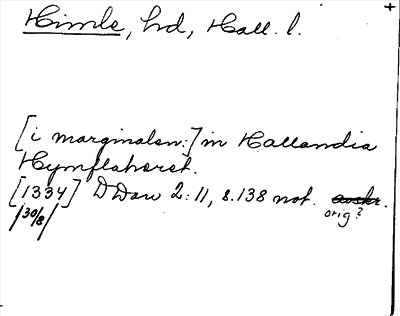 Himle, hd, Hall. l.
[i marginalen:] in Hallandia
Hymflahæret.
[1334] DDan 2:11, s.138 not. avskr.
/30/8/ orig?